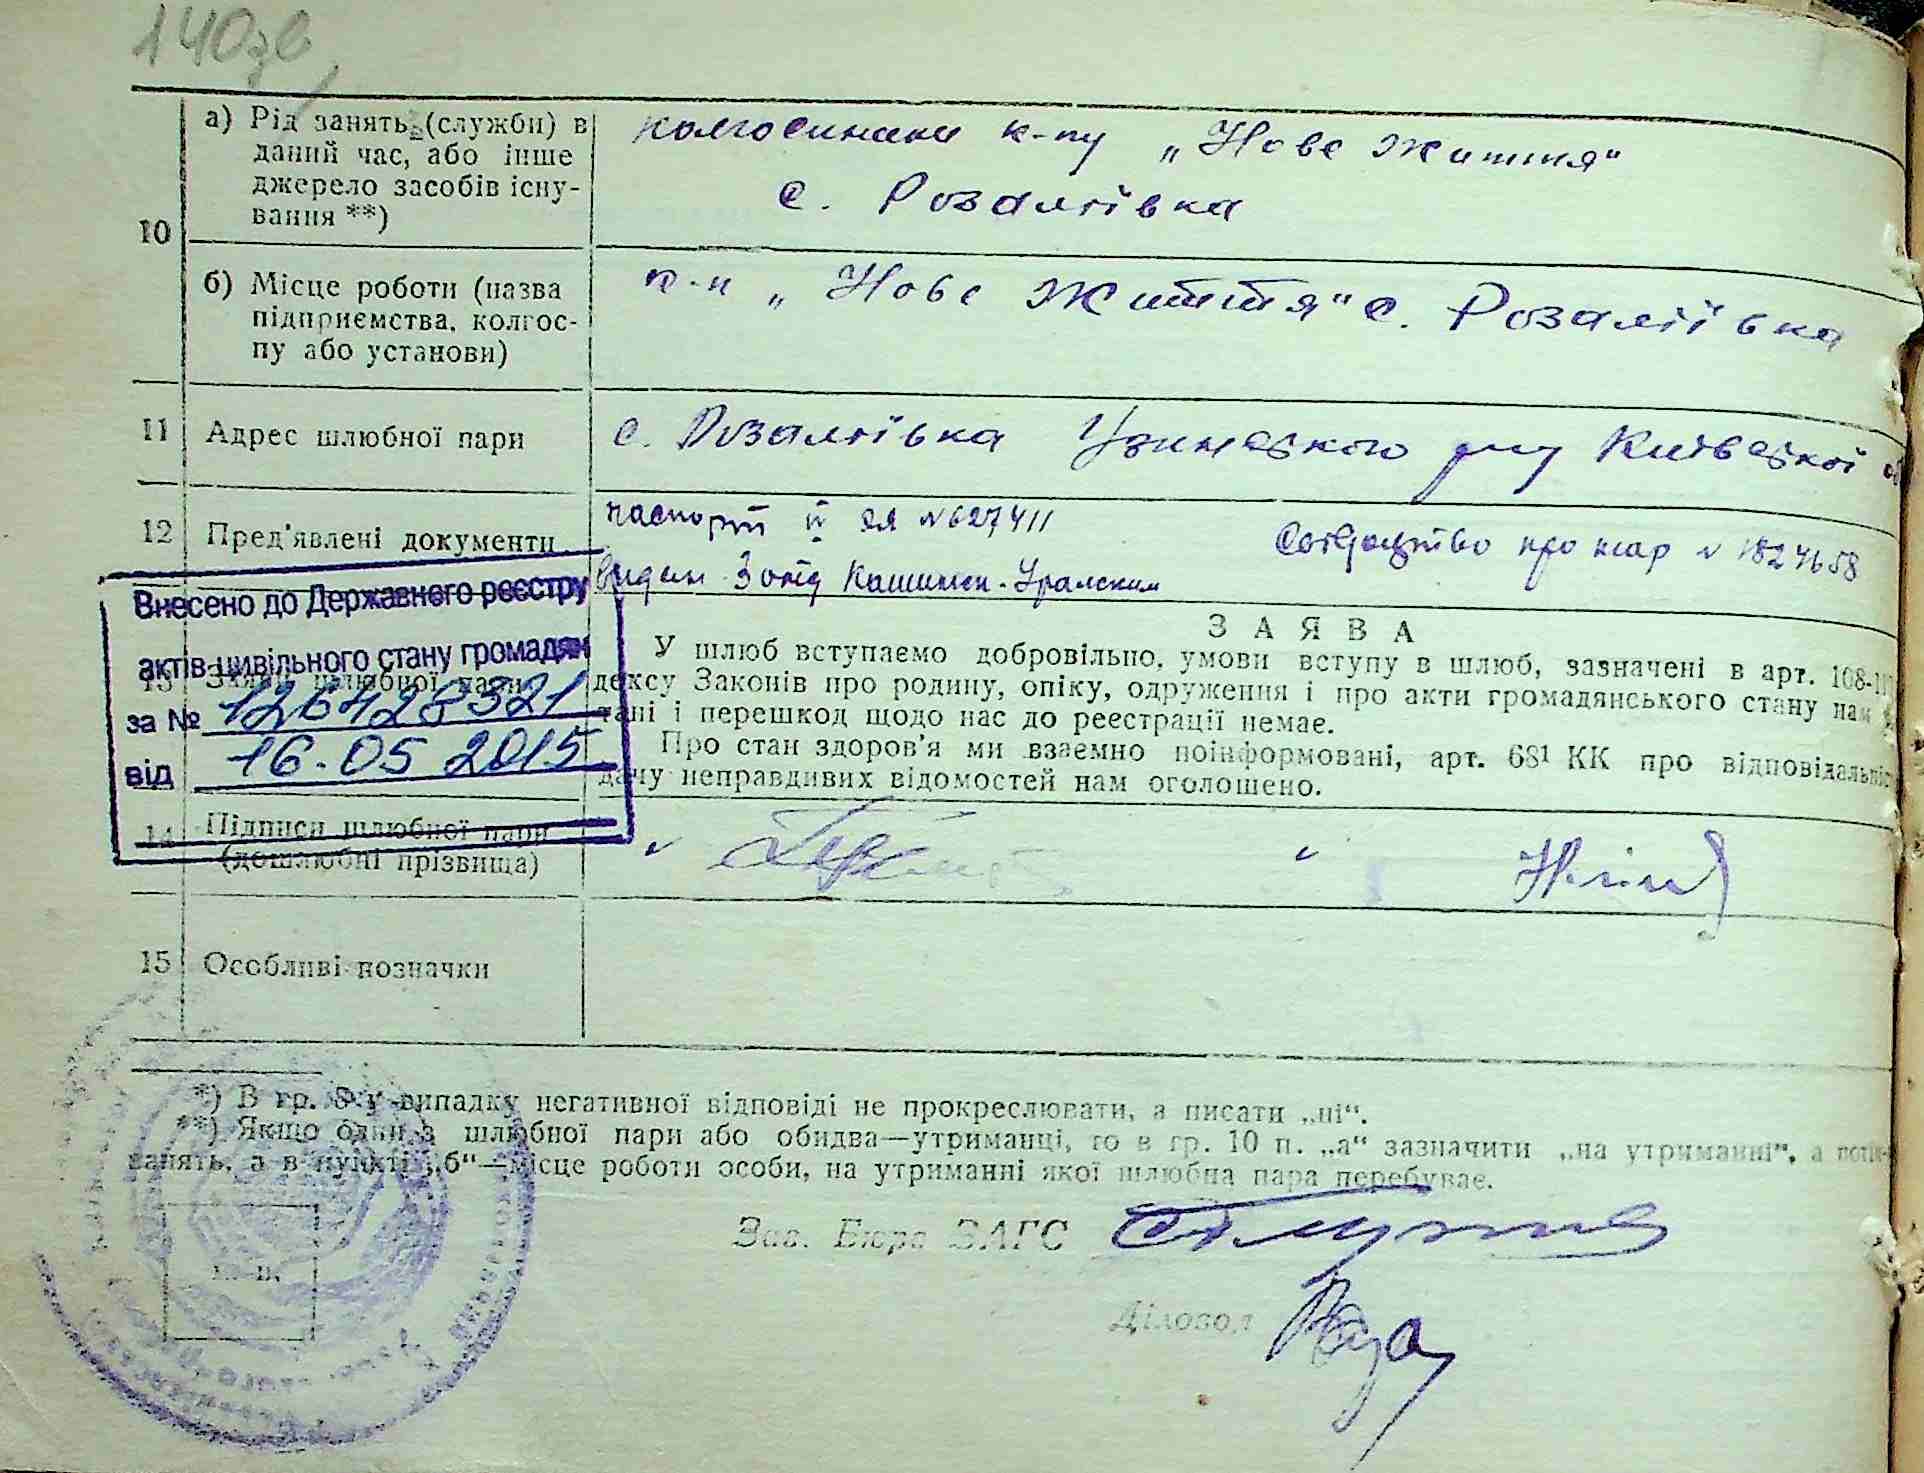 140зв
10
а) Рід занять (служби) в
даний час, або інше
джерело засобів існу-
вання **)
колгоспники к-пу „Нове життя“
с. Розаліївка
б) Місце роботи (назва
підприємства, колгос-
пу або установи)
к-п „Нове життя“ с. Розаліївка
11 Адрес шлюбної пари
с. Розаліївка Узинського р-ну Київської
12 Пред'явлені документи
паспорт № 627411
про шар № 1824658
видан
Внесено до Державного реєстру
актів цивільного стану громадян
за № 126428321
від 16.05 2015
13 Заява шлюбної пари
ЗАЯВА
У шлюб вступаємо добровільно, умови вступу в шлюб, зазначені в арт. 108-
дексу Законів про родину, опіку, одруження і про акти громадянського стану нам
тані і перешкод щодо нас до реєстрації немає.
Про стан здоров'я ми взаємно поінформовані, арт. 68¹ КК про відповідальніс
дачу неправдивих відомостей нам оголошено.
14 Підписи шлюбної пари
(дошлюбні прізвища)
15 Особливі позначки
*) В гр. 8 у випадку негативної відповіді не прокреслювати, а писати „ні“.
**) Якщо один з шлюбної пари або обидва—утриманці, то в гр. 10 п. „а“ зазначити „на утриманні“, а
занять, а в пункті „б“—місце роботи особи, на утриманні якої шлюбна пара перебуває.
Зав. Бюро ЗАГС
м. п.
Діловод